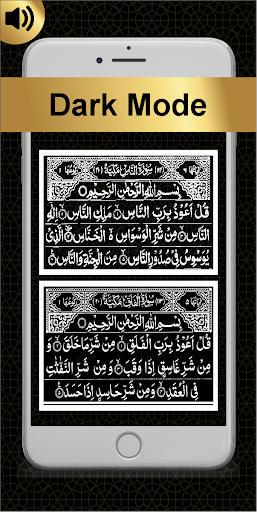 Dark Mode
سُوْرَةُ النَّاسِ مَكِّيَّةٌ
بِسْمِ اللّٰهِ الرَّحْمٰنِ الرَّحِيْمِ
قُلْ اَعُوْذُ بِرَبِّ النَّاسِ ۙ مَلِكِ النَّاسِ ۙ اِلٰهِ
النَّاسِ ۙ مِنْ شَرِّ الْوَسْوَاسِ ۙ الْخَنَّاسِ ۙ الَّذِيْ
يُوَسْوِسُ فِيْ صُدُوْرِ النَّاسِ ۙ مِنَ الْجِنَّةِ وَالنَّاسِ
سُوْرَةُ الْفَلَقِ مَكِّيَّةٌ
بِسْمِ اللّٰهِ الرَّحْمٰنِ الرَّحِيْمِ
قُلْ اَعُوْذُ بِرَبِّ الْفَلَقِ ۙ مِنْ شَرِّ مَا خَلَقَ ۙ وَ
مِنْ شَرِّ غَاسِقٍ اِذَا وَقَبَ ۙ وَ مِنْ شَرِّ النَّفّٰثٰتِ
فِي الْعُقَدِ ۙ وَ مِنْ شَرِّ حَاسِدٍ اِذَا حَسَدَ